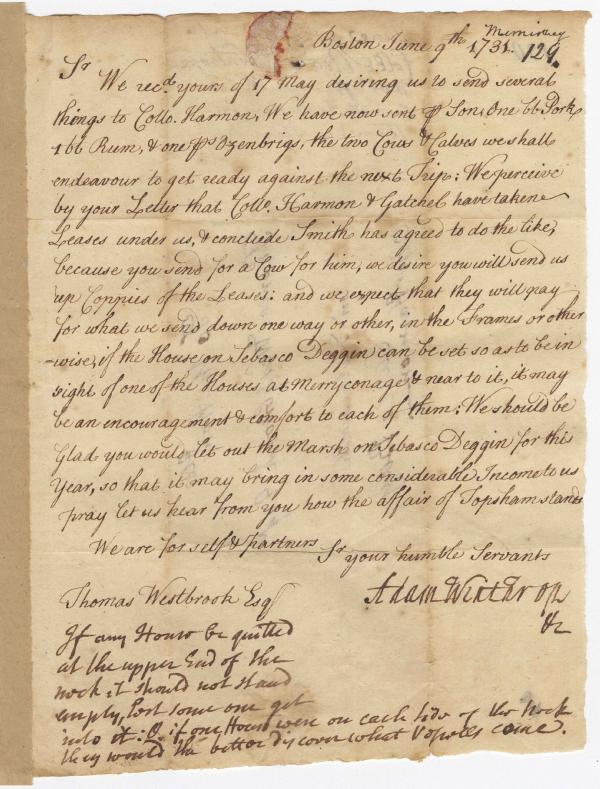 Boston June 9th. 1731.
129.
Sr
We recd. yours of 17 May desiring us to send several
things to Collo. Harmon, We have now sent ⅌ Son, One bb Pork,
1 bb Rum, & one ps Ozenbrigs, the two Cows & Calves we shall
endeavour to get ready against the next Trip: We perceive
by your Letter that Collo. Harmon & Gatchel have taken
Leases under us, & conclude Smith has agreed to do the like,
because you send for a Cow for him, we desire you will send us
up Coppies of the Leases: and we expect that they will pay
for what we send down one way or other, in the Frames or other
-wise, if the House on Sebasco Deggin can be set so as to be in
sight of one of the Houses at Merryconage & near to it, it may
be an encouragement & comfort to each of them: We should be
Glad you would let out the Marsh on Sebasco Deggin for this
Year, so that it may bring in some considerable Income to us
pray let us hear from you how the affair of Topsham stands
We are for self & partners Sr your humble Servants
Adam Winthrop
&c
Thomas Westbrook Esq
If any House be quitted
at the upper End of the
neck it should not stand
empty, lest some one get
into it: & if one House were on each side of the Neck
they would the better discover what Vessels come.